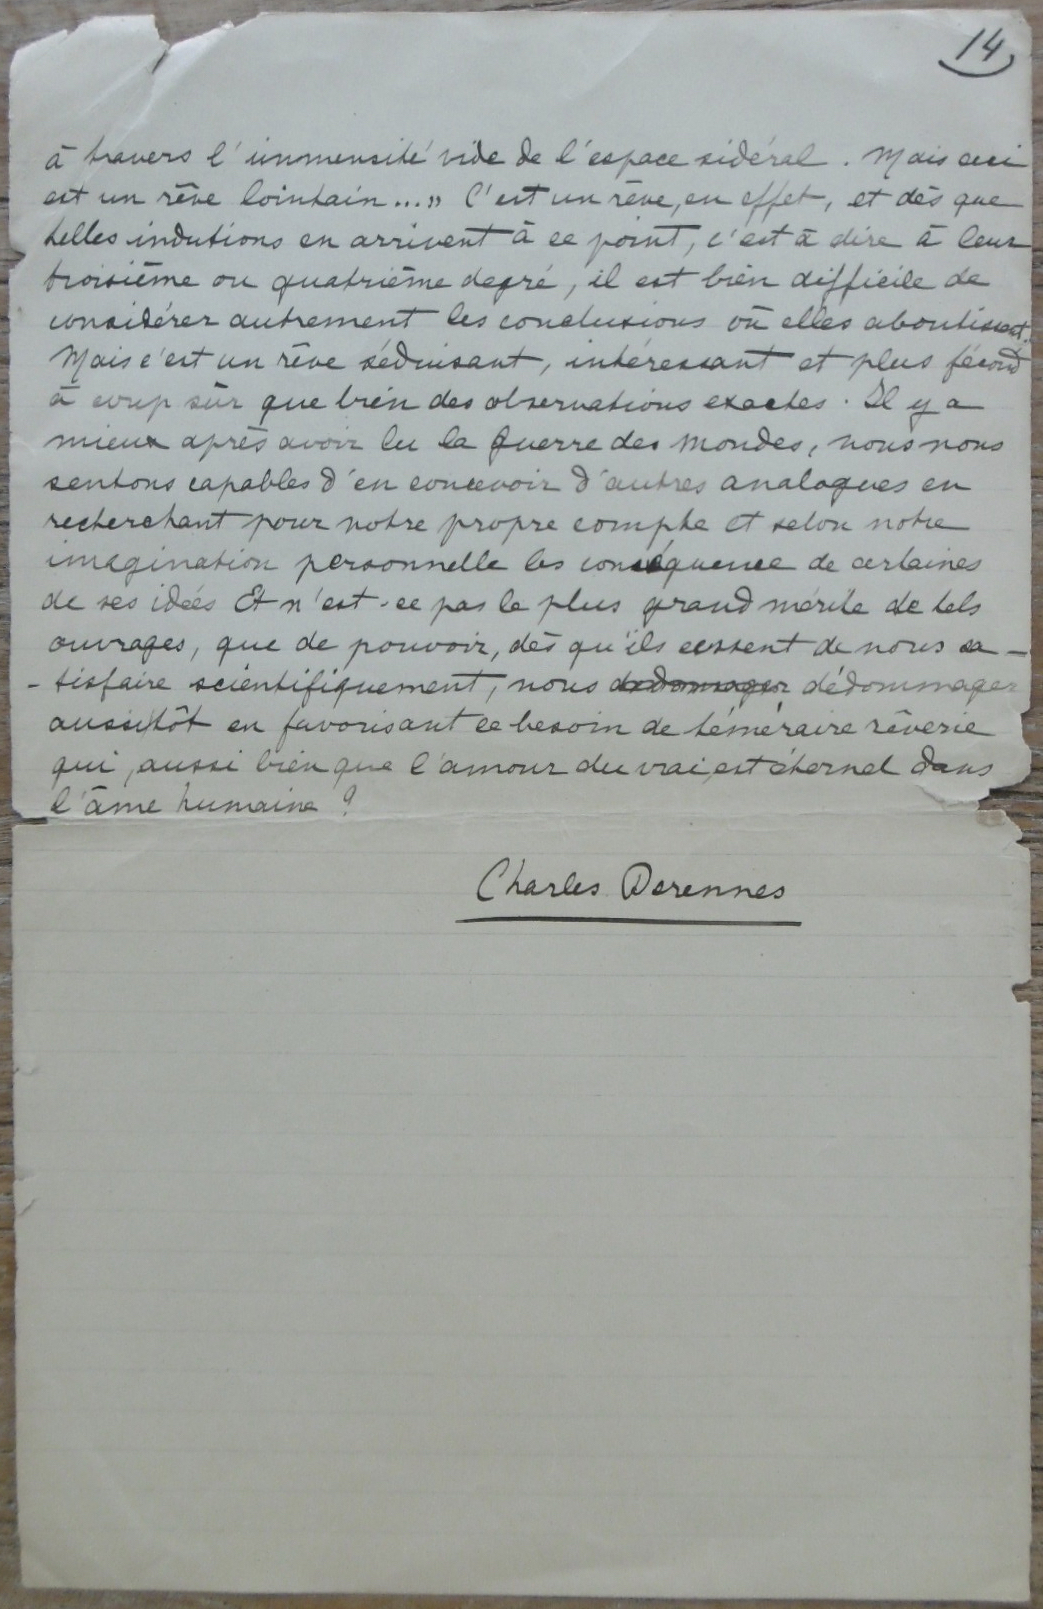 14
à travers l'immensité vide de l'espace sidéral. Mais ceci
est un rêve lointain..." C'est un rêve, en effet, et dès que
telles indutions en arrivent à ce point, c'est à dire à leur
troisième ou quatrième degré, il est bien difficile de
considérer autrement les conclusions où elles aboutissent.
Mais c'est un rêve séduisant, intéressant et plus fécond
à coup sûr que bien des observations exactes. Il y a
mieux après avoir lu la guerre des Mondes, nous nous
sentons capables d'en concevoir d'autres analogues en
recherchant pour notre propre compte et selon notre
imagination personnelle les conséquence de certaines
de ses idées Et n'est-ce pas le plus grand mérite de tels
ouvrages, que de pouvoir, dès qu'ils cessent de nous sa-
-tisfaire scientifiquement, nous dédommager
aussitôt en favorisant ce besoin de téméraire rêverie
qui, aussi bien que l'amour du vrai, est éternel dans
l'âme humaine ?
Charles Derennes